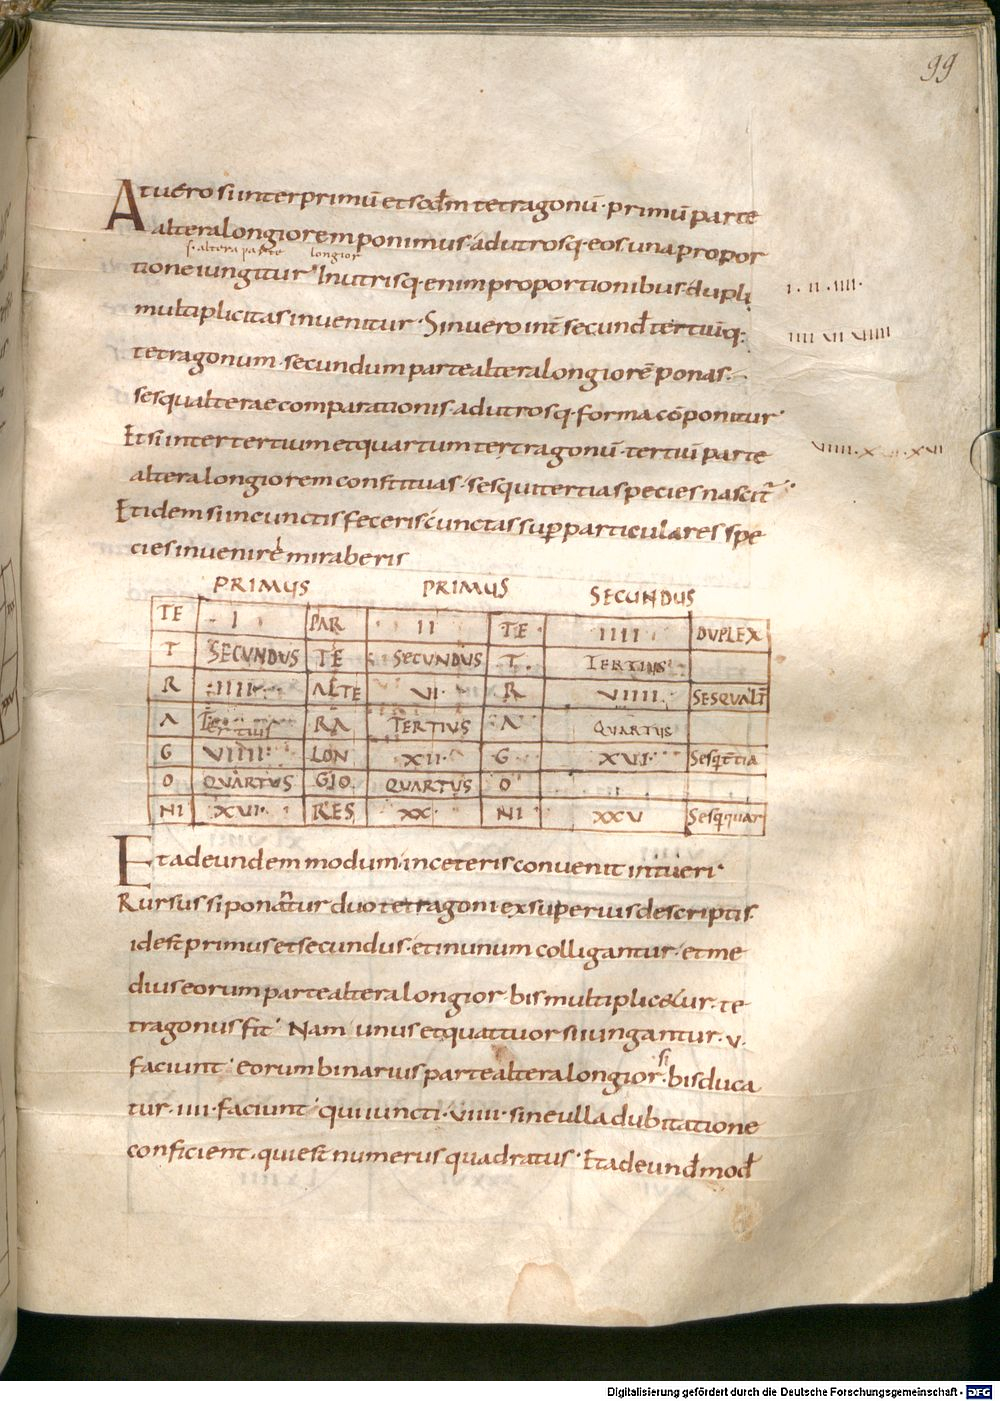 99
Atuero siinterprimū etscďm tetragonū · primū parte
alteralongiorem ponimus · adutrosq· eos unapropor
s· altera parte longior
tioneiungitur · Inutrisq· enimproportionibus · dupli
ı · ıı · ıııı ·
multiplicitas inuenitur · Sinuero int̄ secund̄ tertiūq·
ıııı vıı xıııı
tetragonum · secundum partealteralongiorē ponas ·
sesqualterae comparationis · adutrosq· forma cōponitur ·
Et siinter tertium etquartum tertragonū · tertiū parte
vıııı ·
alteralongiorem constituas · sesquitertia species nascit̄ ·
Et idem siincunctis feceris cunctas sup̱particulares spe
cies inuenirè miraberis
PRIMUS PRIMUS SECUNDUS
TE I PAR II TE IIII DUPLEX
T SECUNDUS TE SECUNDUS T TERTIUS
R IIII ALTE VI R VIIII SESQUALT̄
A Tertius RA TERTIUS A QUARTUS
G VIIII LON XII G XVI Sesq̄t̄tia
O QUARTUS GIO QUARTUS O
NI XVI RES XX NI XXV Sesq̄quar
Et adeundem modum inceteris conuenit intueri ·
Rursus siponantur duo tetragoni exsuperius descriptis ·
idest primus etsecundus · etinunum colligantur · etme
dius eorum partealteralongior · bis multiplicetur · te
tragonus fit · Nam unus etquattuor siiungantur · v ·
si
faciunt · eorum binarius partealteralongior · bisduca
tur · ıııı · faciunt · quiiuncti · vıııı · sineulla dubitatione
conficient · quiest numerus quadratus · Et adeund̄ mod̄
Digitalisierung gefördert durch die Deutsche Forschungsgemeinschaft - DFG